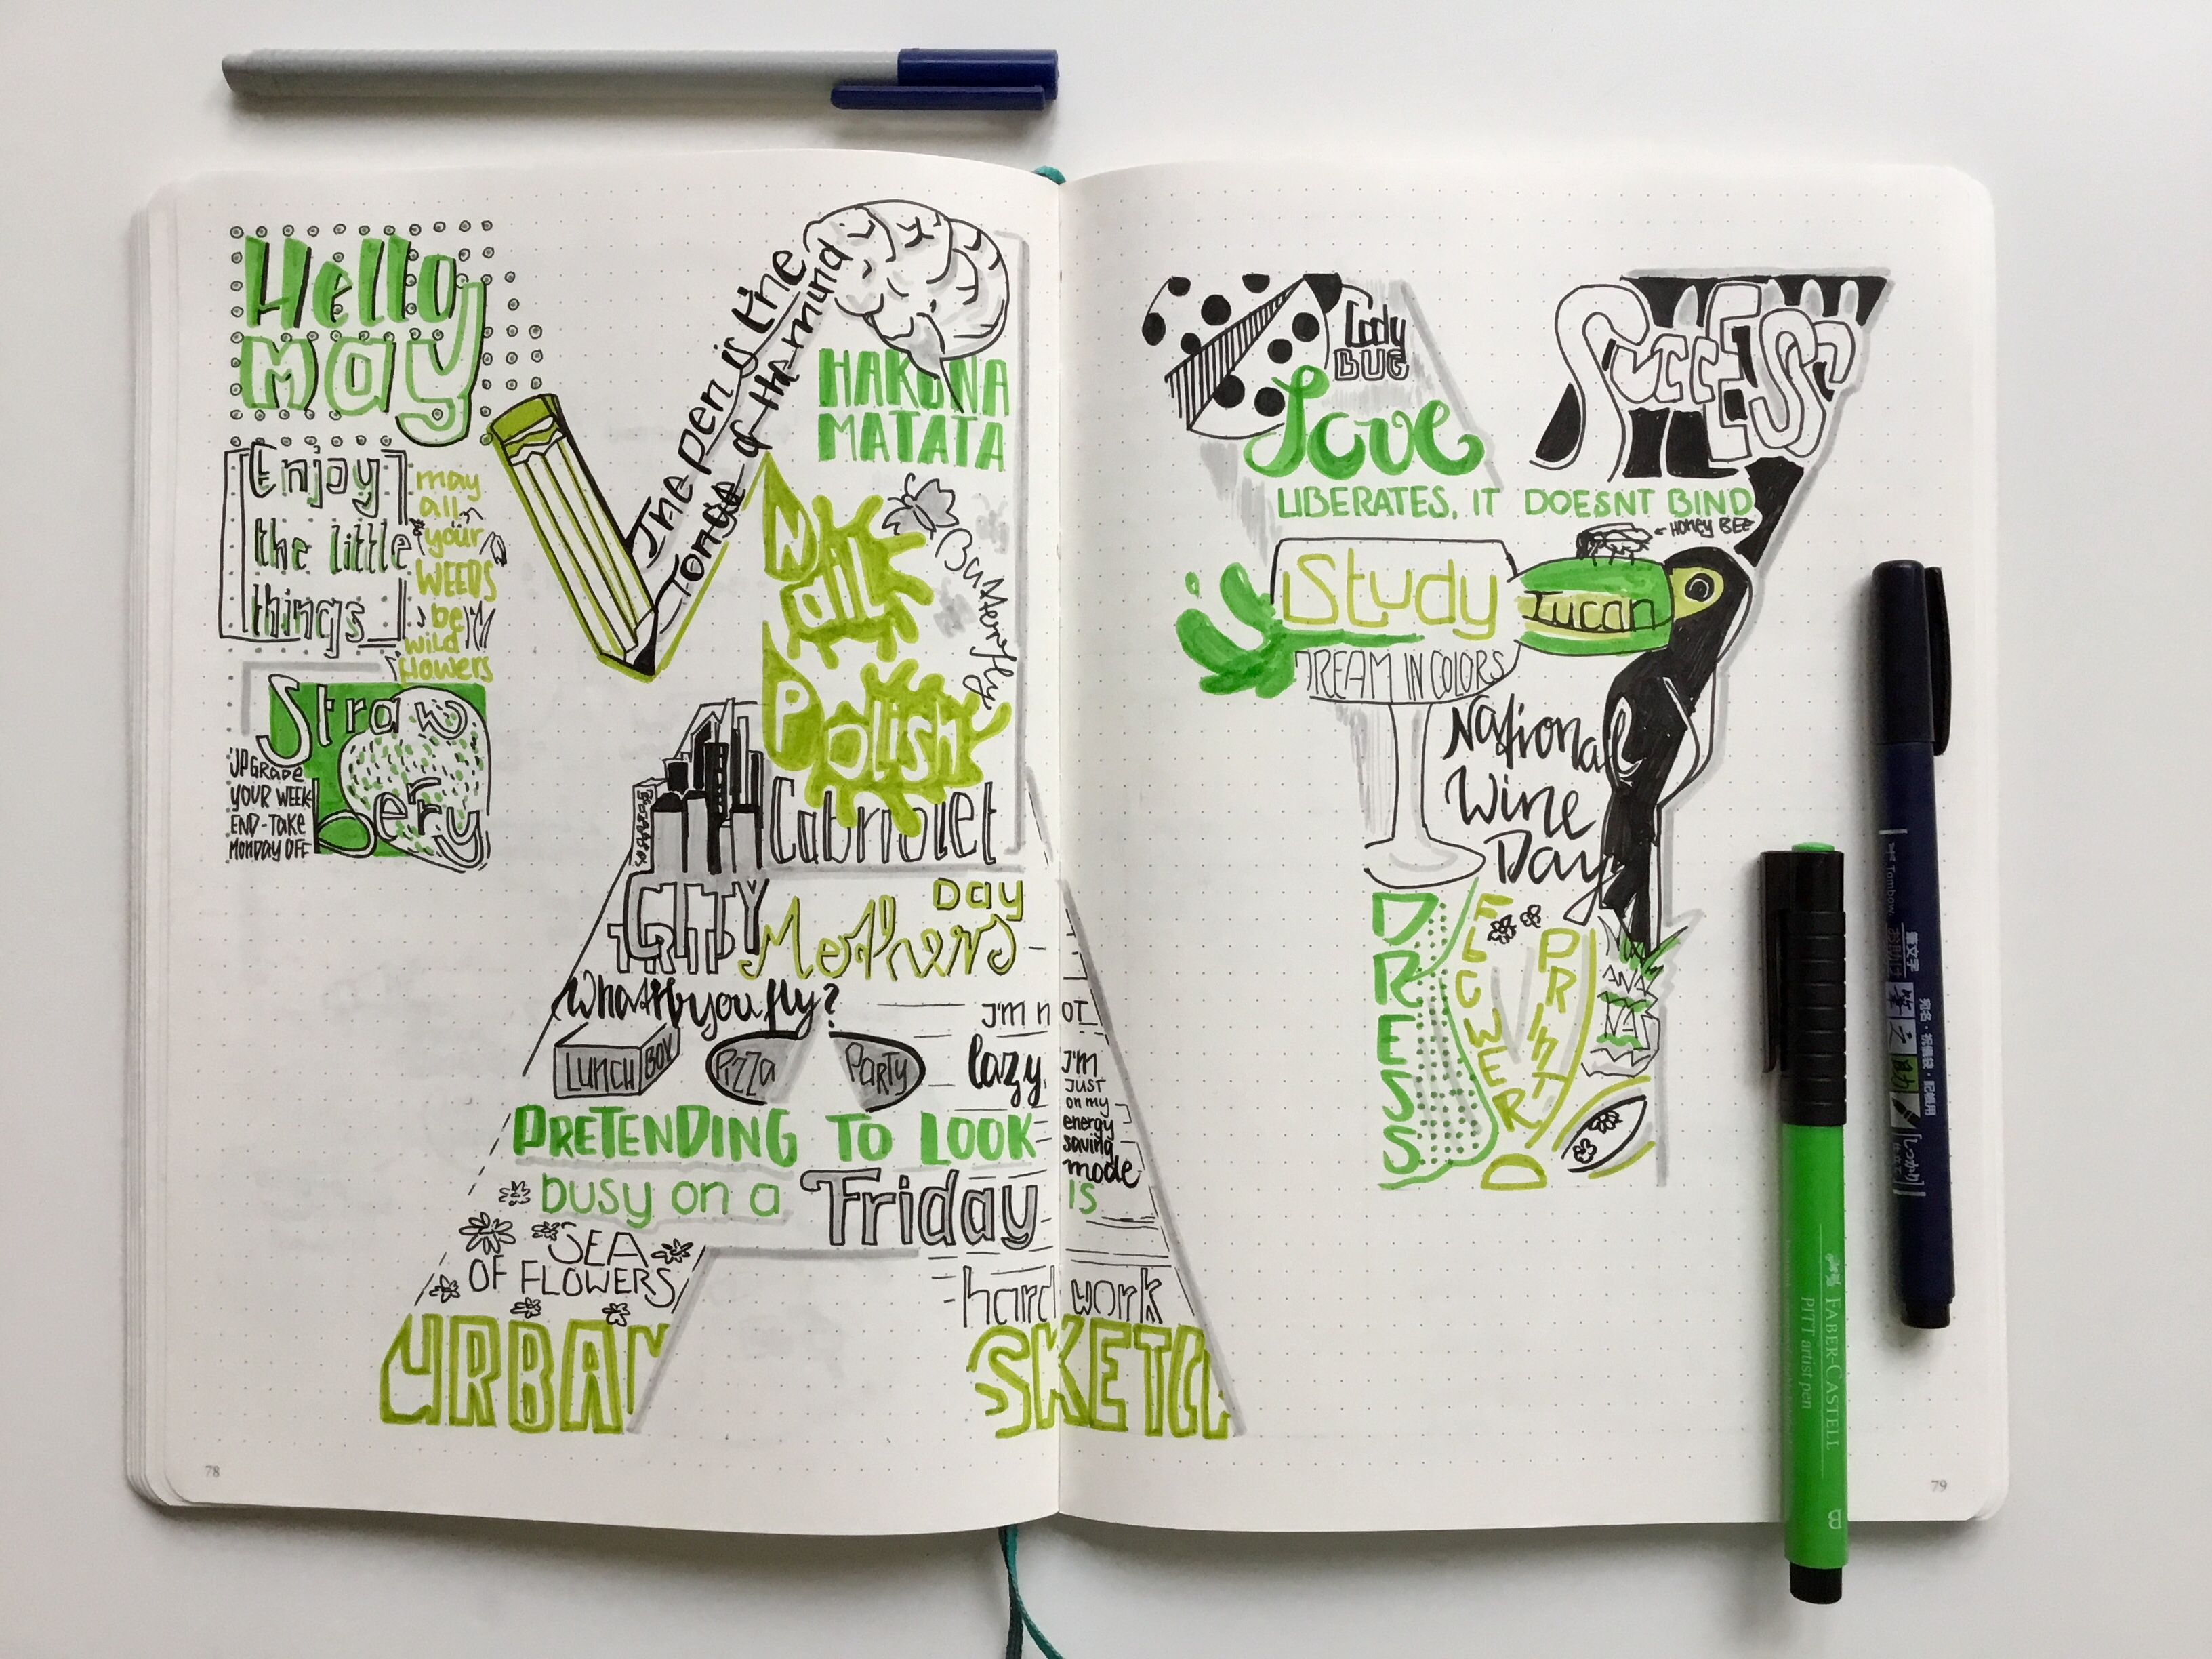 Hello
may
Enjoy
the little
things
may
all
your
WEEDS
be
wild
flowers
Straw
berry
UPGRADE
YOUR WEEK
END-TAKE
MONDAY OFF
The pen is the
Tongue of the mind
HAKUNA
MATATA
Nail
Polish
Butterfly
Cabriolet
CITY
TRIP
Mothers
Day
What if you fly?
LUNCH BOX
Pizza
PARTY
I'm not
lazy
I'm
JUST
on my
energy
saving
mode
PRETENDING TO LOOK
busy on a Friday IS
hard work
SEA
OF FLOWERS
URBAN
SKETCH
78
Lady
BUG
SUCCESS
Love
LIBERATES, IT DOESNT BIND
HONEY BEE
Study
Tucan
DREAM IN COLORS
National
Wine
Day
DRESS
FLOWER
PRINT
ANA
NAS
79
Tombow
筆文字
筆之助
しっかり
宛名・祝儀袋・記帳用
FABER-CASTELL
PITT artist pen
B